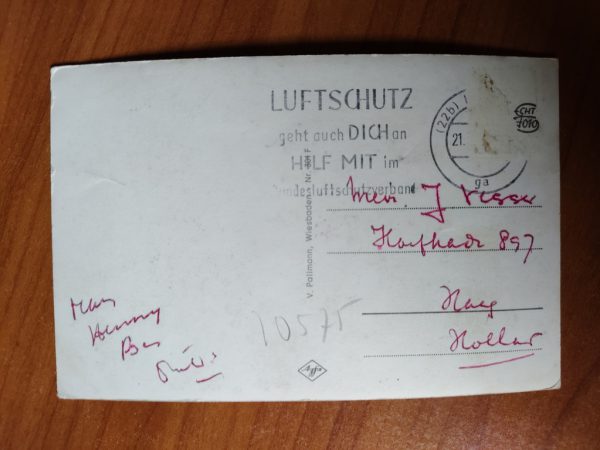 LUFTSCHUTZ
geht auch DICH an
HILF MIT im
Bundesluftschutzverband
(22b)
21.
ga
ECHT
FOTO
V. Pallmann, Wiesbaden Nr. F
Mevr. J Visser
897
Haag
Holland
Henny
Bas
10575
Agfa